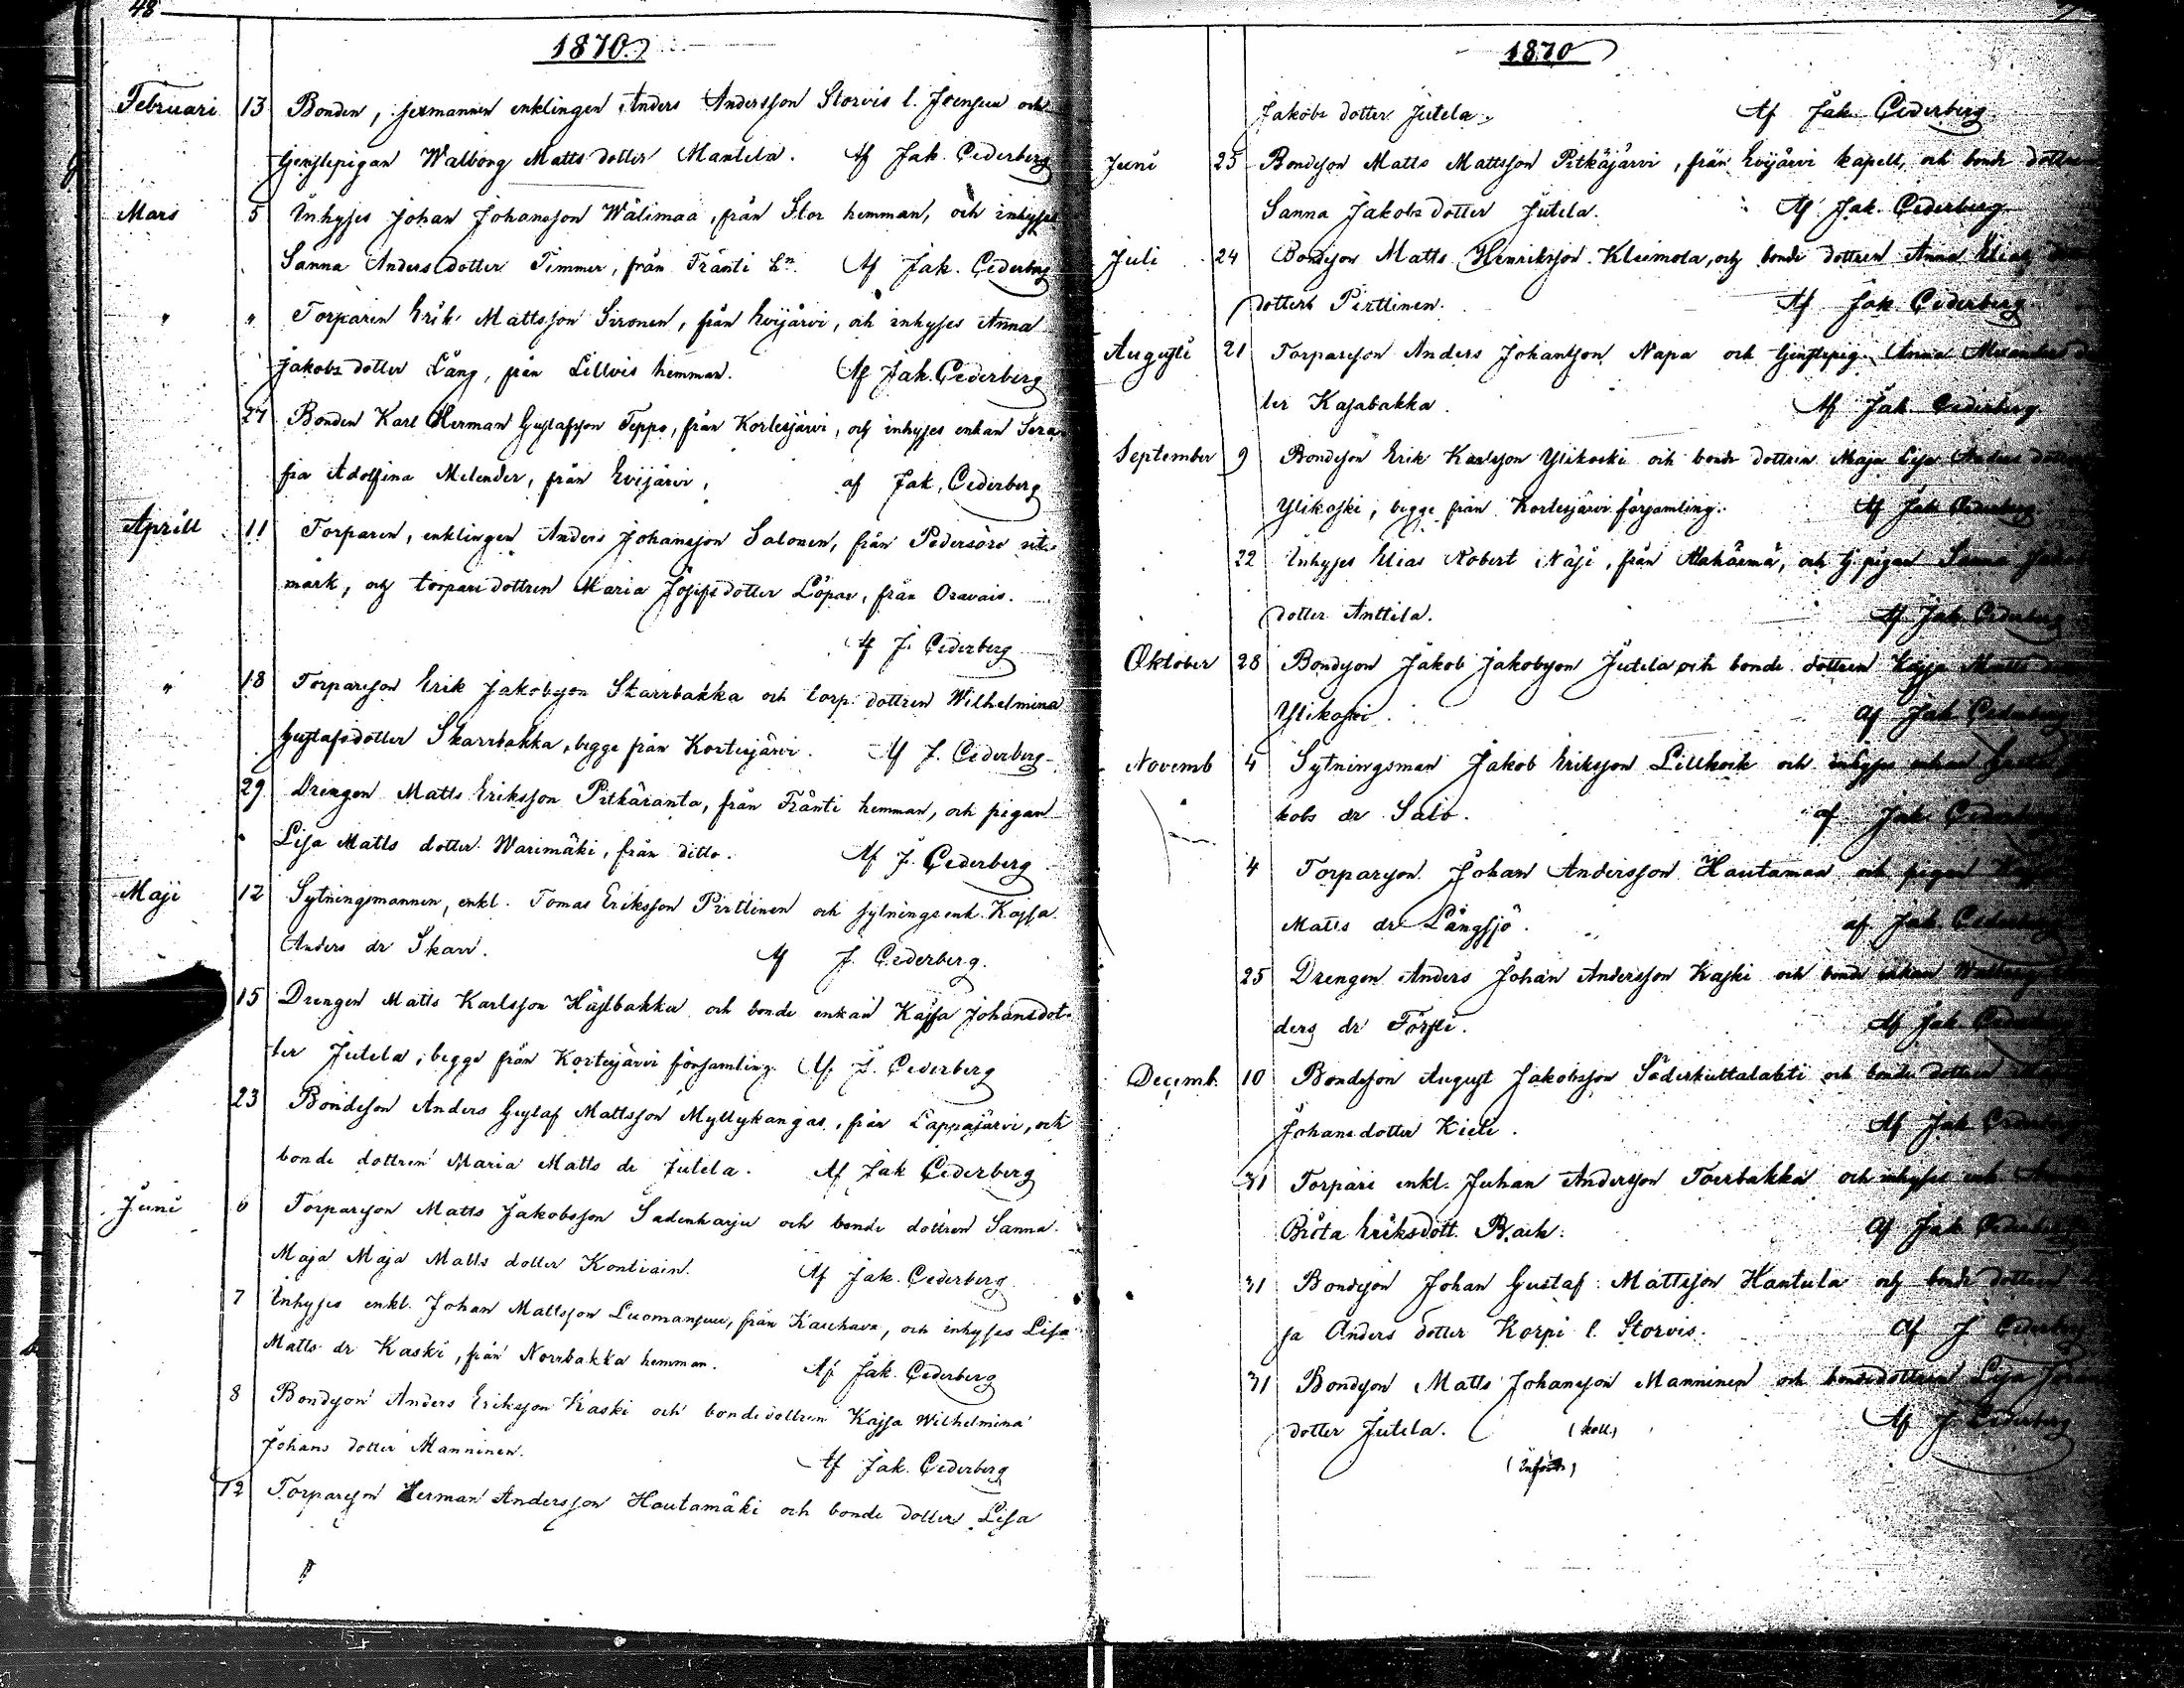 48
1870
Februari 13 Bonden, enklingen Anders Andersson Storvis l. Joensuu och
tjenstepigan Walborg Matts dotter Mantela. Af Jak. Cederberg
Mars 5 Inhyses Johan Johansson Wälimaa, från Stor hemman, och inhyses
Sanna Anders dotter Timmer, från Fränti hn. Af Jak. Cederberg
" " Torparen Erik Mattsson Sironen, från Evijärvi, och inhyses Anna
Jakobs dotter Lång, från Lillvis hemman. Af Jak. Cederberg
27 Bonden Karl Herman Gustafsson Teppo, från Kortesjärvi, och inhyses enkan Sera
fia Adolfina Melender, från Evijärvi, af Jak. Cederberg
Aprill 11 Torparen, enklingen Anders Johansson Salonen, från Pedersöre ut
mark, och torpare dottren Maria Josefs dotter Löpar, från Oravais.
Af J. Cederberg
" 18 Torpareson Erik Jakobsson Skarrbakka och torp. dottren Wilhelmina
Gustafsdotter Skarrbakka, begge från Kortesjärvi. Af J. Cederberg
29 Drengen Matts Eriksson Pitkäranta, från Fränti hemman, och pigan
Lisa Matts dotter Warimäki, från ditto. Af J. Cederberg
Maji 12 Sytningsmannen, enkl. Tomas Eriksson Pirttinen och sytnings enk. Kajsa
Anders dr Skarr. Af J. Cederberg.
15 Drengen Matts Karlsson Hästbakka och bonde enkan Kajsa Johansdot-
ter Jutela, begge från Kortesjärvi församling. Af J. Cederberg
23 Bondeson Anders Gustaf Mattsson Myllykangas, från Lappajärvi, och
bonde dottren Maria Matts dr Jutela. Af Jak Cederberg
Juni 6 Torpareson Matts Jakobsson Sadenharju och bonde dottren Sanna
Maja Maja Matts dotter Kontiain. Af Jak. Cederberg
7 Inhyses enkl. Johan Mattsson Luomansuu, från Kauhava, och inhyses Lisa
Matts dr Kaski, från Norrbakka hemman. Af Jak. Cederberg
8 Bondeson Anders Eriksson Kaski och bondedottren Kajsa Wilhelmina
Johans dotter Manninen. Af Jak. Cederberg
12 Torpareson Herman Andersson Hautamäki och bonde dotter Lisa
1870
Jakobs dotter Jutela. Af Jak Cederberg
Juni 25 Bondeson Matts Mattsson Pitkäjärvi, från Evijärvi kapell, och bonde dottren
Sanna Jakobs dotter Jutela. Af Jak. Cederberg
Juli 24 Bondeson Matts Henriksson Kleimola, och bonde dottren Anna Elias
dotter Pirttinen. Af Jak Cederberg
Augusti 21 Torpareson Anders Johansson Napa och tjenstepig. Anna Alexanders
ter Kasabakka. Af Jak Cederberg
September 9 Bondeson Erik Karlsson Ylikoski och bonde dottren Maja Lisa Anders dotter
Ylikoski, begge från Kortesjärvi församling. Af Jak Cederberg
22 Inhyses Elias Robert Näsi, från Alahärmä, och tj. pigan Sanna
dotter Anttila. Af Jak Cederberg
Oktober 28 Bondson Jakob Jakobsson Jutela och bonde dottren Kajsa Matts
Ylikoski. Af Jak Cederberg
Novemb 4 Sytningsman Jakob Eriksson Lillkock och inhyses enkan
kobs dr Salo. af Jak Cederberg
4 Torpareson Johan Andersson Hautamaa och pigan
Matts dr Långsjö. af Jak Cederberg
25 Drengen Anders Johan Andersson Kaski och bonde enkan Walborg
ders dr Försti. Af Jak Cederberg
Decemb. 10 Bondeson August Jakobsson Söderkultalahti och bonde dottren
Johans dotter Kieli. Af Jak Cederberg
31 Torpare enkl. Juhan Andersson Toerbakka och inhyses enk.
Brita Eriksdott. Back. Af Jak Cederberg
31 Bondeson Johan Gustaf Mattsson Hantula och bonde dotter
sa Anders dotter Korpi l. Storvis. Af J Cederberg
31 Bondson Matts Johansson Manninen och bondedottren Lisa
dotter Jutela. (koll.) Af J Cederberg
(Införts)